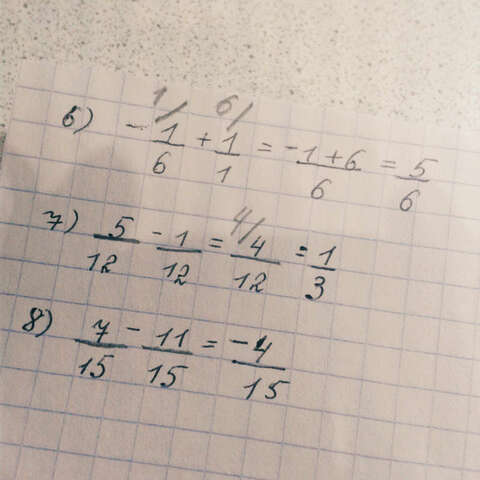 6) -1/6 + 1/1 = -1+6/6 = 5/6
7) 5/12 - 1/12 = 4/12 = 1/3
8) 7/15 - 11/15 = -4/15